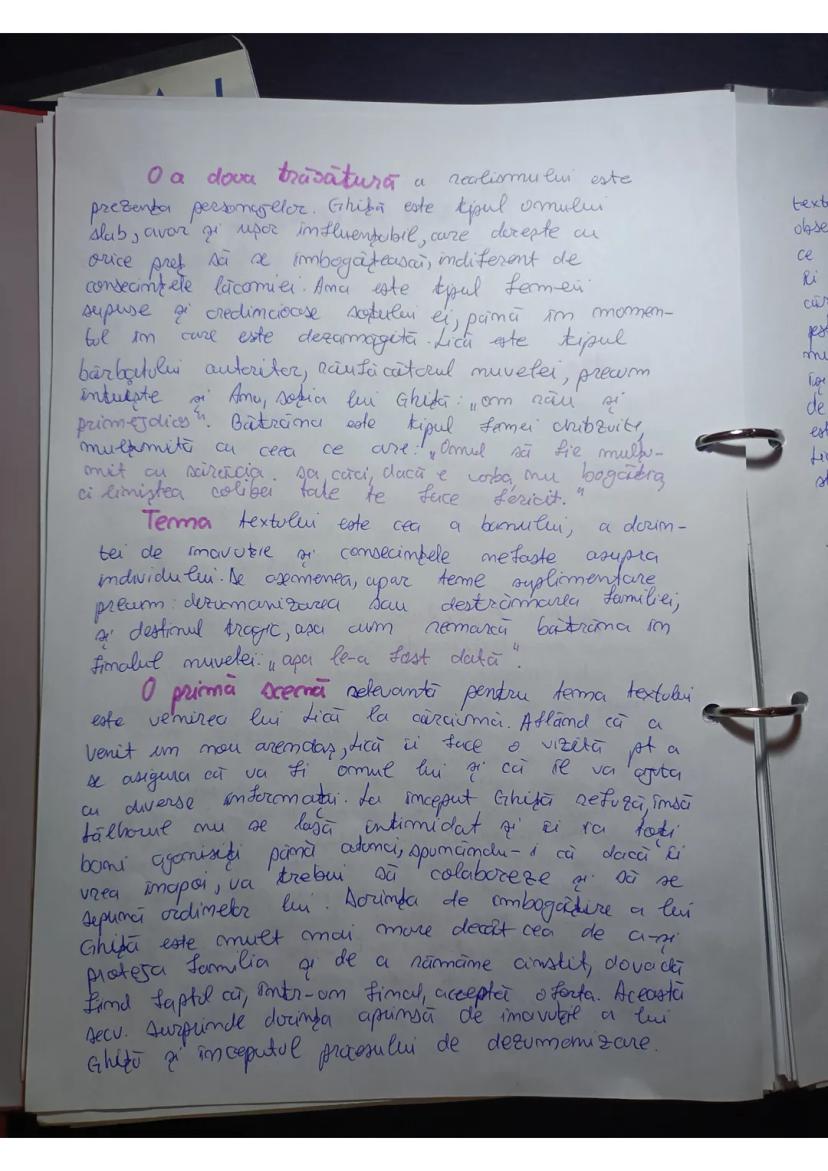 O a doua trăsătură a realismului este
prezența personajelor. Ghiță este tipul omului
slab, avar și ușor influențabil, care dorește cu
orice preț să se îmbogățească, indiferent de
consecințele lăcomiei. Ana este tipul femeii
supuse și credincioase soțului ei, până în momen-
tul în care este dezamăgită. Lică este tipul
bărbatului autoritar, răufăcătorul nuvelei, precum
intuiește și Ana, soția lui Ghiță: „om rău și
primejdios". Bătrâna este tipul femei chibzuite,
mulțumită cu ceea ce are: „Omul să fie mulțu-
mit cu sărăcia sa căci, dacă e vorba, nu bogăția,
ci liniștea colibei tale te face fericit."
Tema textului este cea a banului, a dorin-
ței de înavuție și consecințele nefaste asupra
individului. De asemenea, apar teme suplimentare
precum: dezumanizarea sau destrămarea familiei,
și destinul tragic, așa cum remarcă bătrâna în
finalul nuvelei: „așa le-a fost dată".
O primă scenă relevantă pentru tema textului
este venirea lui Lică la cârciumă. Aflând că a
venit un nou arendaș, Lică îi face o vizită pt a
se asigura că va fi omul lui și că îl va ajuta
cu diverse informații. La început Ghiță refuză, însă
tâlharul nu se lasă intimidat și îi ia toți
bani agonisiți până atunci, spunându-i că dacă îi
vrea înapoi, va trebui să colaboreze și să se
supună ordinelor lui. Dorința de îmbogățire a lui
Ghiță este mult mai mare decât cea de a-și
proteja familia și de a rămâne cinstit, dovadă
fiind faptul că, într-un final, acceptă oferta. Această
secv. surprinde dorința aprinsă de înavuție a lui
Ghiță și începutul procesului de dezumanizare.
text
obse
ce
de